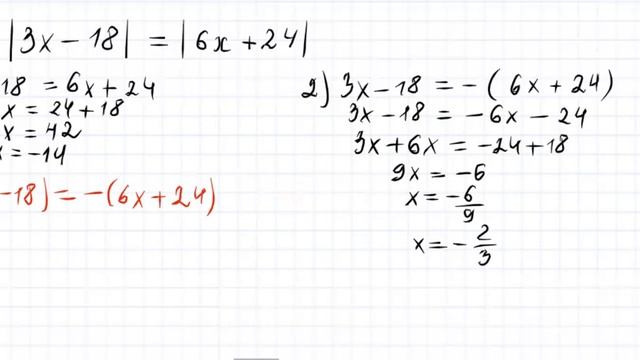 |3x − 18| = |6x + 24|
18 = 6x + 24
x = 24 + 18
x = 42
x = −14
−18) = −(6x + 24)
2) 3x − 18 = −(6x + 24)
3x − 18 = −6x − 24
3x + 6x = −24 + 18
9x = −6
x = −6/9
x = −2/3